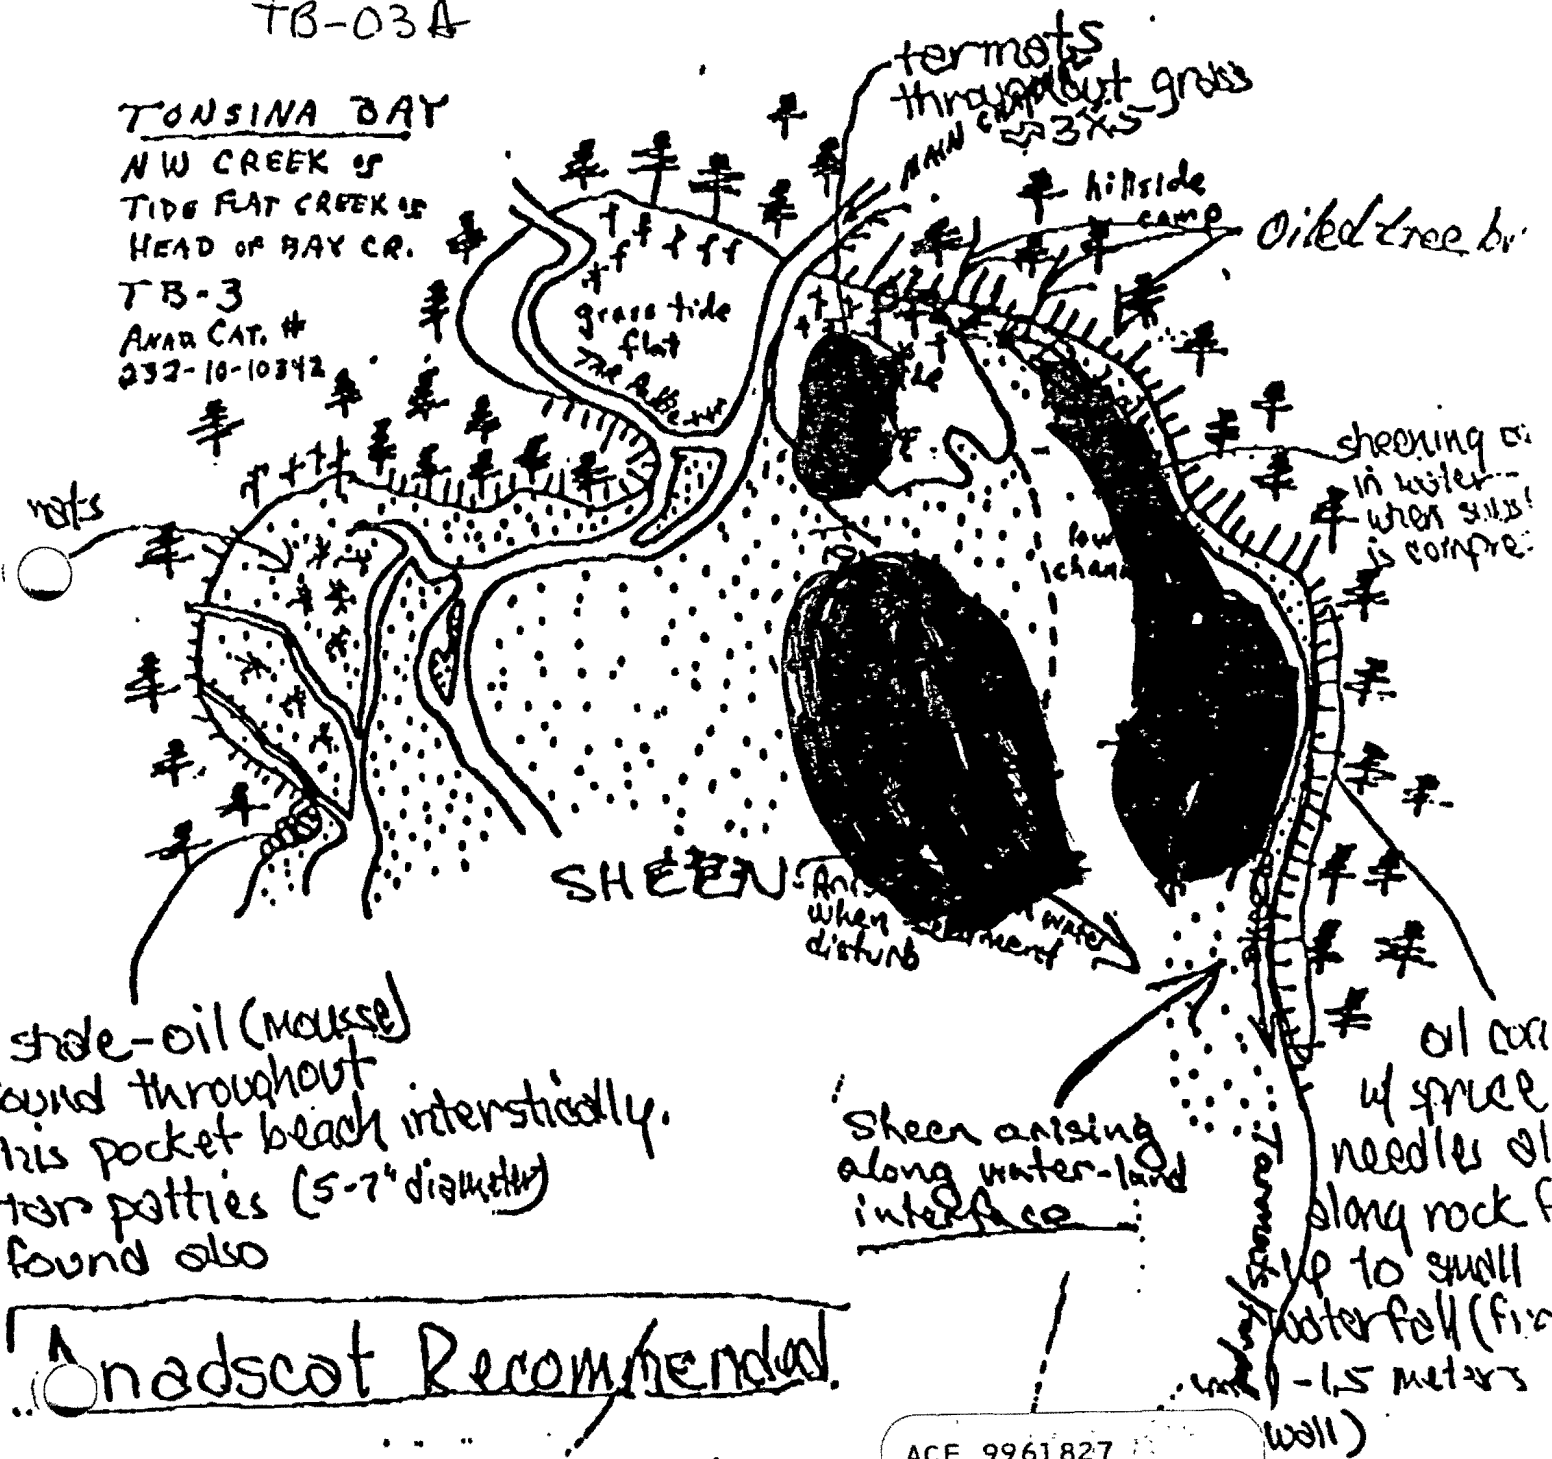 TB-03A
TONSINA BAY
NW CREEK of
TIDE FLAT CREEK of
HEAD OF BAY CR.
TB-3
ANAD CAT. #
232-10-10342
tarmats
throughout grass
3X5
MAIN
hillside
camp
Oiled tree br
grass tide
flat
sheening
in water
when
is compre
mats
low
SHEEN
when
disturb
water
shale-oil (mousse)
ound throughout
his pocket beach interstically.
tar patties (5-7" diameter)
found also
Anadscat Recommended.
Sheen arising
along water-land
interface
Tarmats
oil con
w/ spruce
needles al
along rock f
up to small
waterfall (fir
-1.5 meters
wall)
ACE 9961827